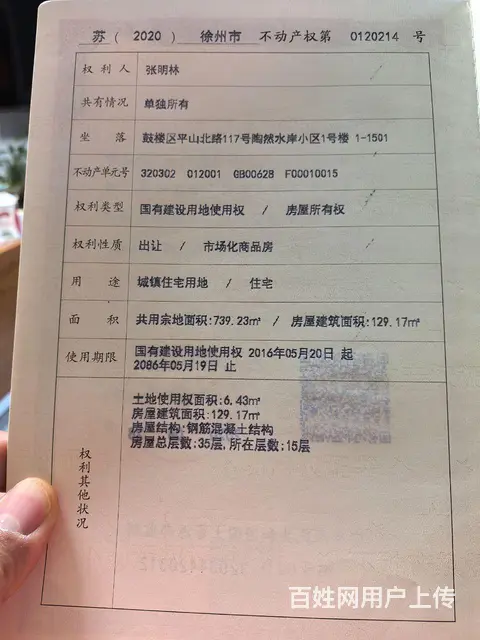 苏（ 2020 ） 徐州市 不动产权第 0120214 号
权利人 张明林
共有情况 单独所有
坐落 鼓楼区平山北路117号陶然水岸小区1号楼 1-1501
不动产单元号 320302 012001 GB00628 F00010015
权利类型 国有建设用地使用权 / 房屋所有权
权利性质 出让 / 市场化商品房
用途 城镇住宅用地 / 住宅
面积 共用宗地面积:739.23㎡ / 房屋建筑面积:129.17㎡
使用期限 国有建设用地使用权 2016年05月20日 起
2086年05月19日 止
权利其他状况
土地使用权面积:6.43㎡
房屋建筑面积:129.17㎡
房屋结构:钢筋混凝土结构
房屋总层数:35层,所在层数:15层
百姓网用户上传